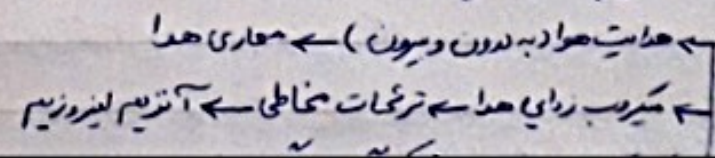 ← هدایت هوا (به درون و بیرون) ← مجاری هوا
← میکروب زدایی هوا ← ترشحات مخاطی ← آنزیم لیزوزیم